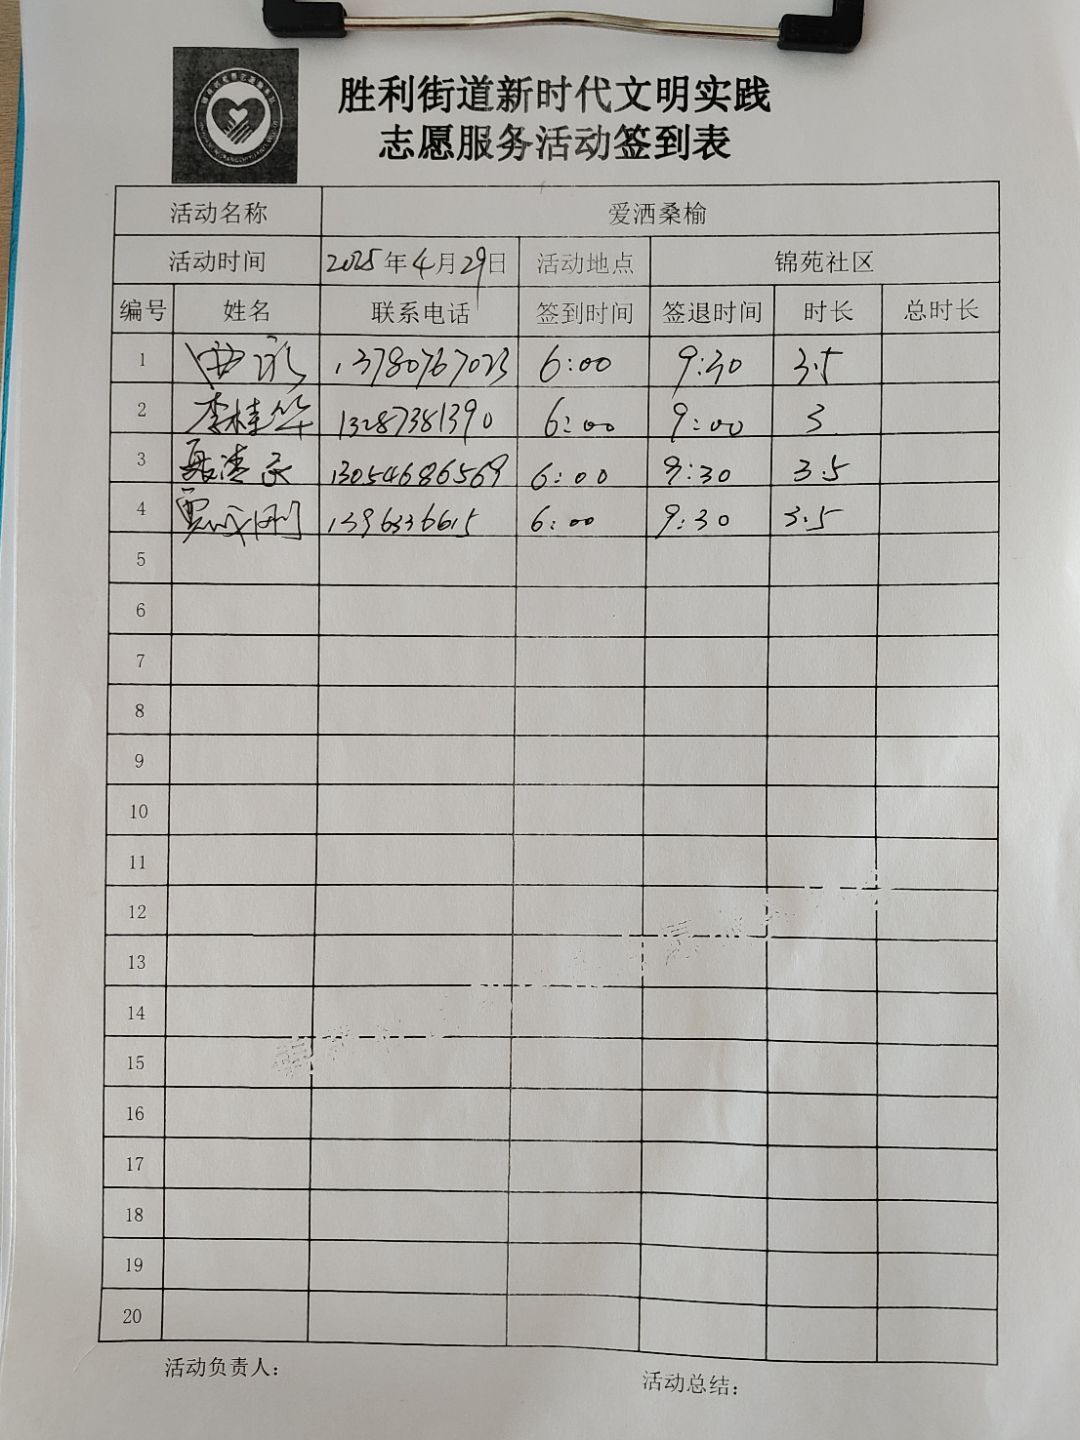 胜利街道新时代文明实践
志愿服务活动签到表
活动名称 爱洒桑榆
活动时间 2025年4月29日 活动地点 锦苑社区
编号 姓名 联系电话 签到时间 签退时间 时长 总时长
1 13780767023 6:00 9:30 3.5
2 李桂华 13287381390 6:00 9:00 3
3 13054686569 6:00 9:30 3.5
4 贾成刚 1396336615 6:00 9:30 3.5
5
6
7
8
9
10
11
12
13
14
15
16
17
18
19
20
活动负责人：
活动总结：